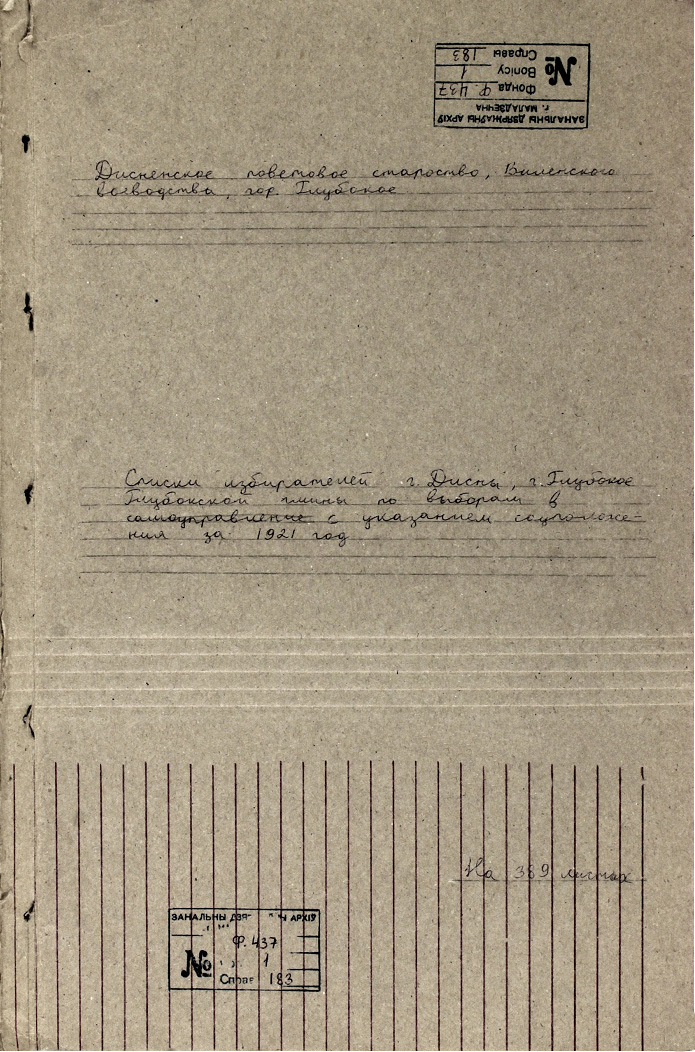 ЗАНАЛЬНЫ ДЗЯРЖАЎНЫ АРХІЎ
г. МАЛАДЗЕЧНА
Фонда Ф. 437
№ Вопісу 1
Справы 183
Дисненское поветовое староство, Виленского
воеводства, гор. Глубокое
Списки избирателей г. Дисны, г. Глубокое
Глубокской гмины по выборам в
самоуправление с указанием соцположе-
ния за 1921 год
На 389 листах
ЗАНАЛЬНЫ ДЗЯ АРХІЎ
Ф. 437
№ 1
Справ 183